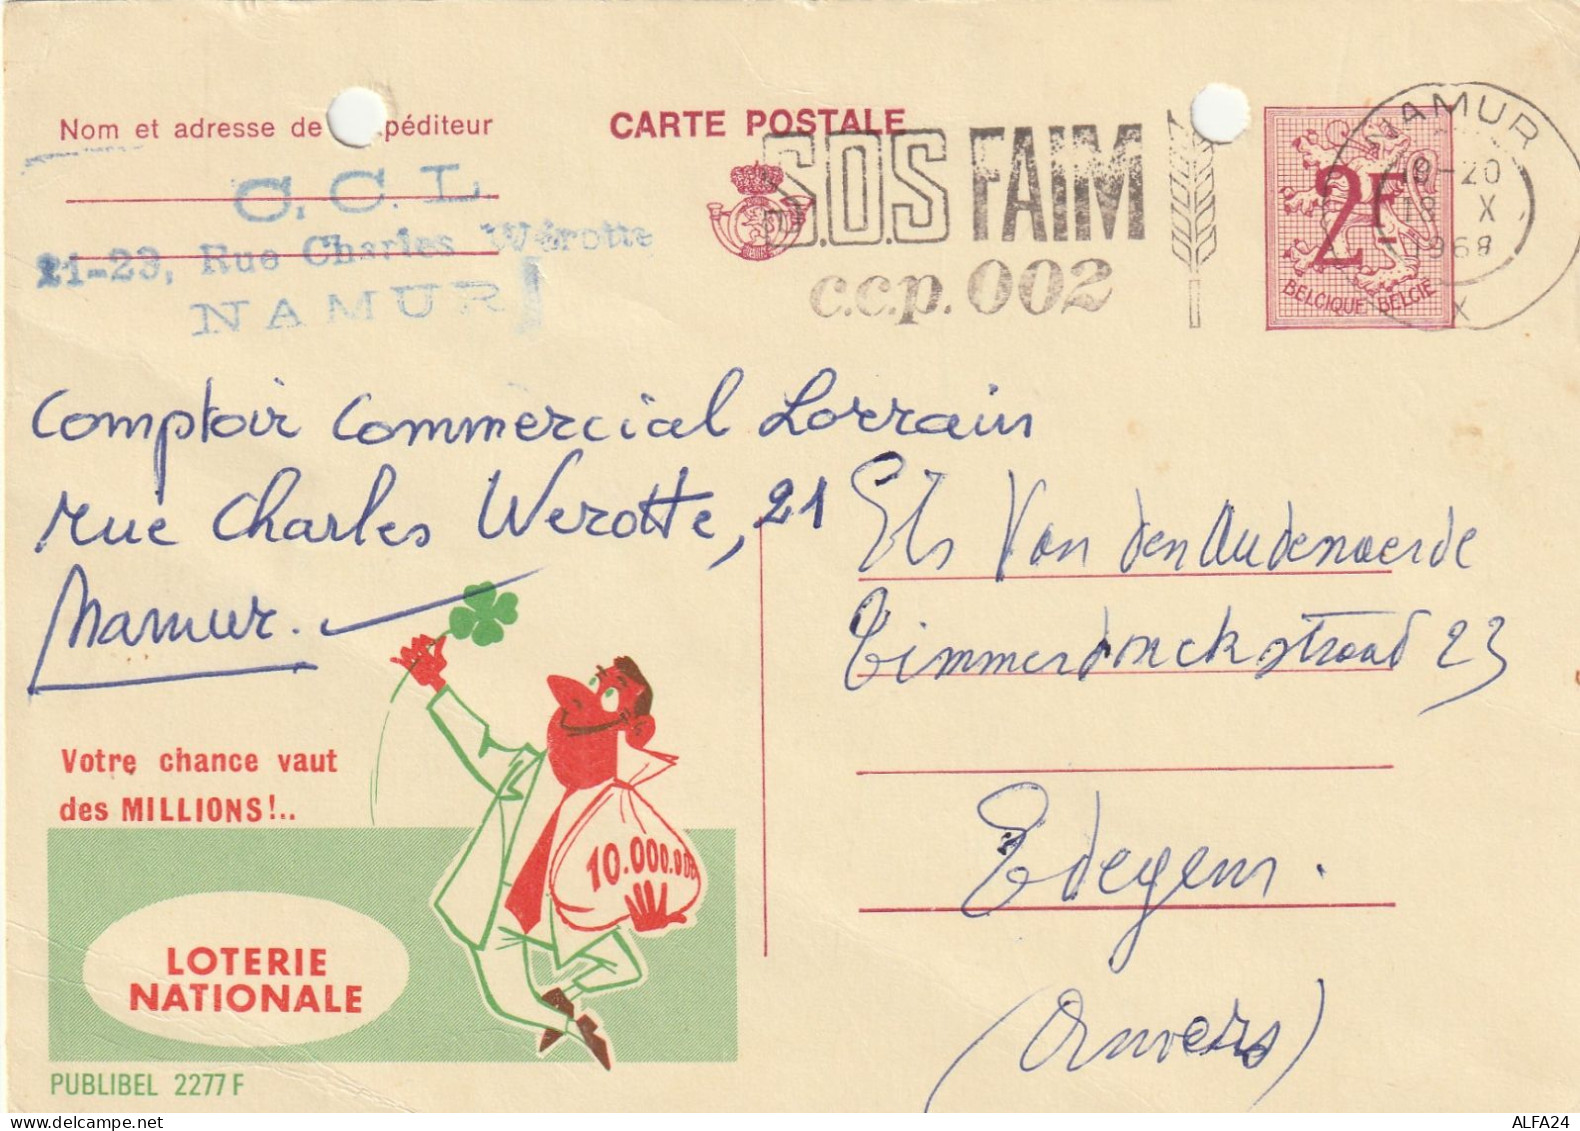 Nom et adresse de péditeur
CARTE POSTALE
C. C. L.
21-23, Rue Charles Wérotte
NAMUR
S.O.S FAIM
c.c.p. 002
NAMUR
19-20
18 X
1968
X
2F
BELGIQUE BELGIË
Comptoir Commercial Lorrain
rue Charles Werotte, 21
Namur.
Ets Van den Audenaerde
Timmerdonckstraat 23
Edegem.
(Anvers)
Votre chance vaut
des MILLIONS!..
10.000.000
LOTERIE
NATIONALE
PUBLIBEL 2277 F
ALFA24